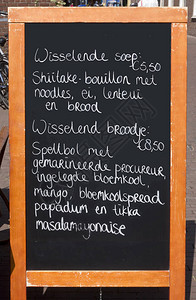 Wisselende soep:
€5,50
Shiitake-bouillon met
noodles, ei, lenteui
en brood
Wisselend broodje:
€8,50
Speltbol met
gemarineerde procureur,
ingelegde bloemkool,
mango, bloemkoolspread
papadum en tikka
masalamayonaise